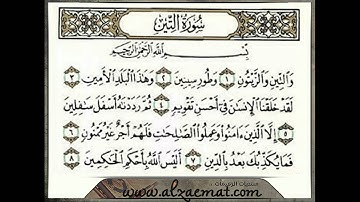 سُورَةُ التِّينِ
بِسْمِ اللَّهِ الرَّحْمَٰنِ الرَّحِيمِ
وَالتِّينِ وَالزَّيْتُونِ ١ وَطُورِ سِينِينَ ٢ وَهَٰذَا الْبَلَدِ الْأَمِينِ ٣
لَقَدْ خَلَقْنَا الْإِنسَٰنَ فِي أَحْسَنِ تَقْوِيمٍ ٤ ثُمَّ رَدَدْنَٰهُ أَسْفَلَ سَٰفِلِينَ
٥ إِلَّا الَّذِينَ ءَامَنُوا وَعَمِلُوا الصَّٰلِحَٰتِ فَلَهُمْ أَجْرٌ غَيْرُ مَمْنُونٍ ٦
فَمَا يُكَذِّبُكَ بَعْدُ بِالدِّينِ ٧ أَلَيْسَ اللَّهُ بِأَحْكَمِ الْحَٰكِمِينَ ٨
www.alzaemat.com